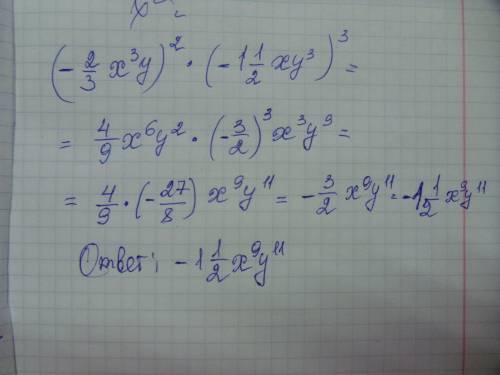 (-2/3 x³y)² · (-1 1/2 xy³)³ =
= 4/9 x⁶y² · (-3/2)³ x³y⁹ =
= 4/9 · (-27/8) x⁹y¹¹ = -3/2 x⁹y¹¹ = -1 1/2 x⁹y¹¹
Ответ: -1 1/2 x⁹y¹¹